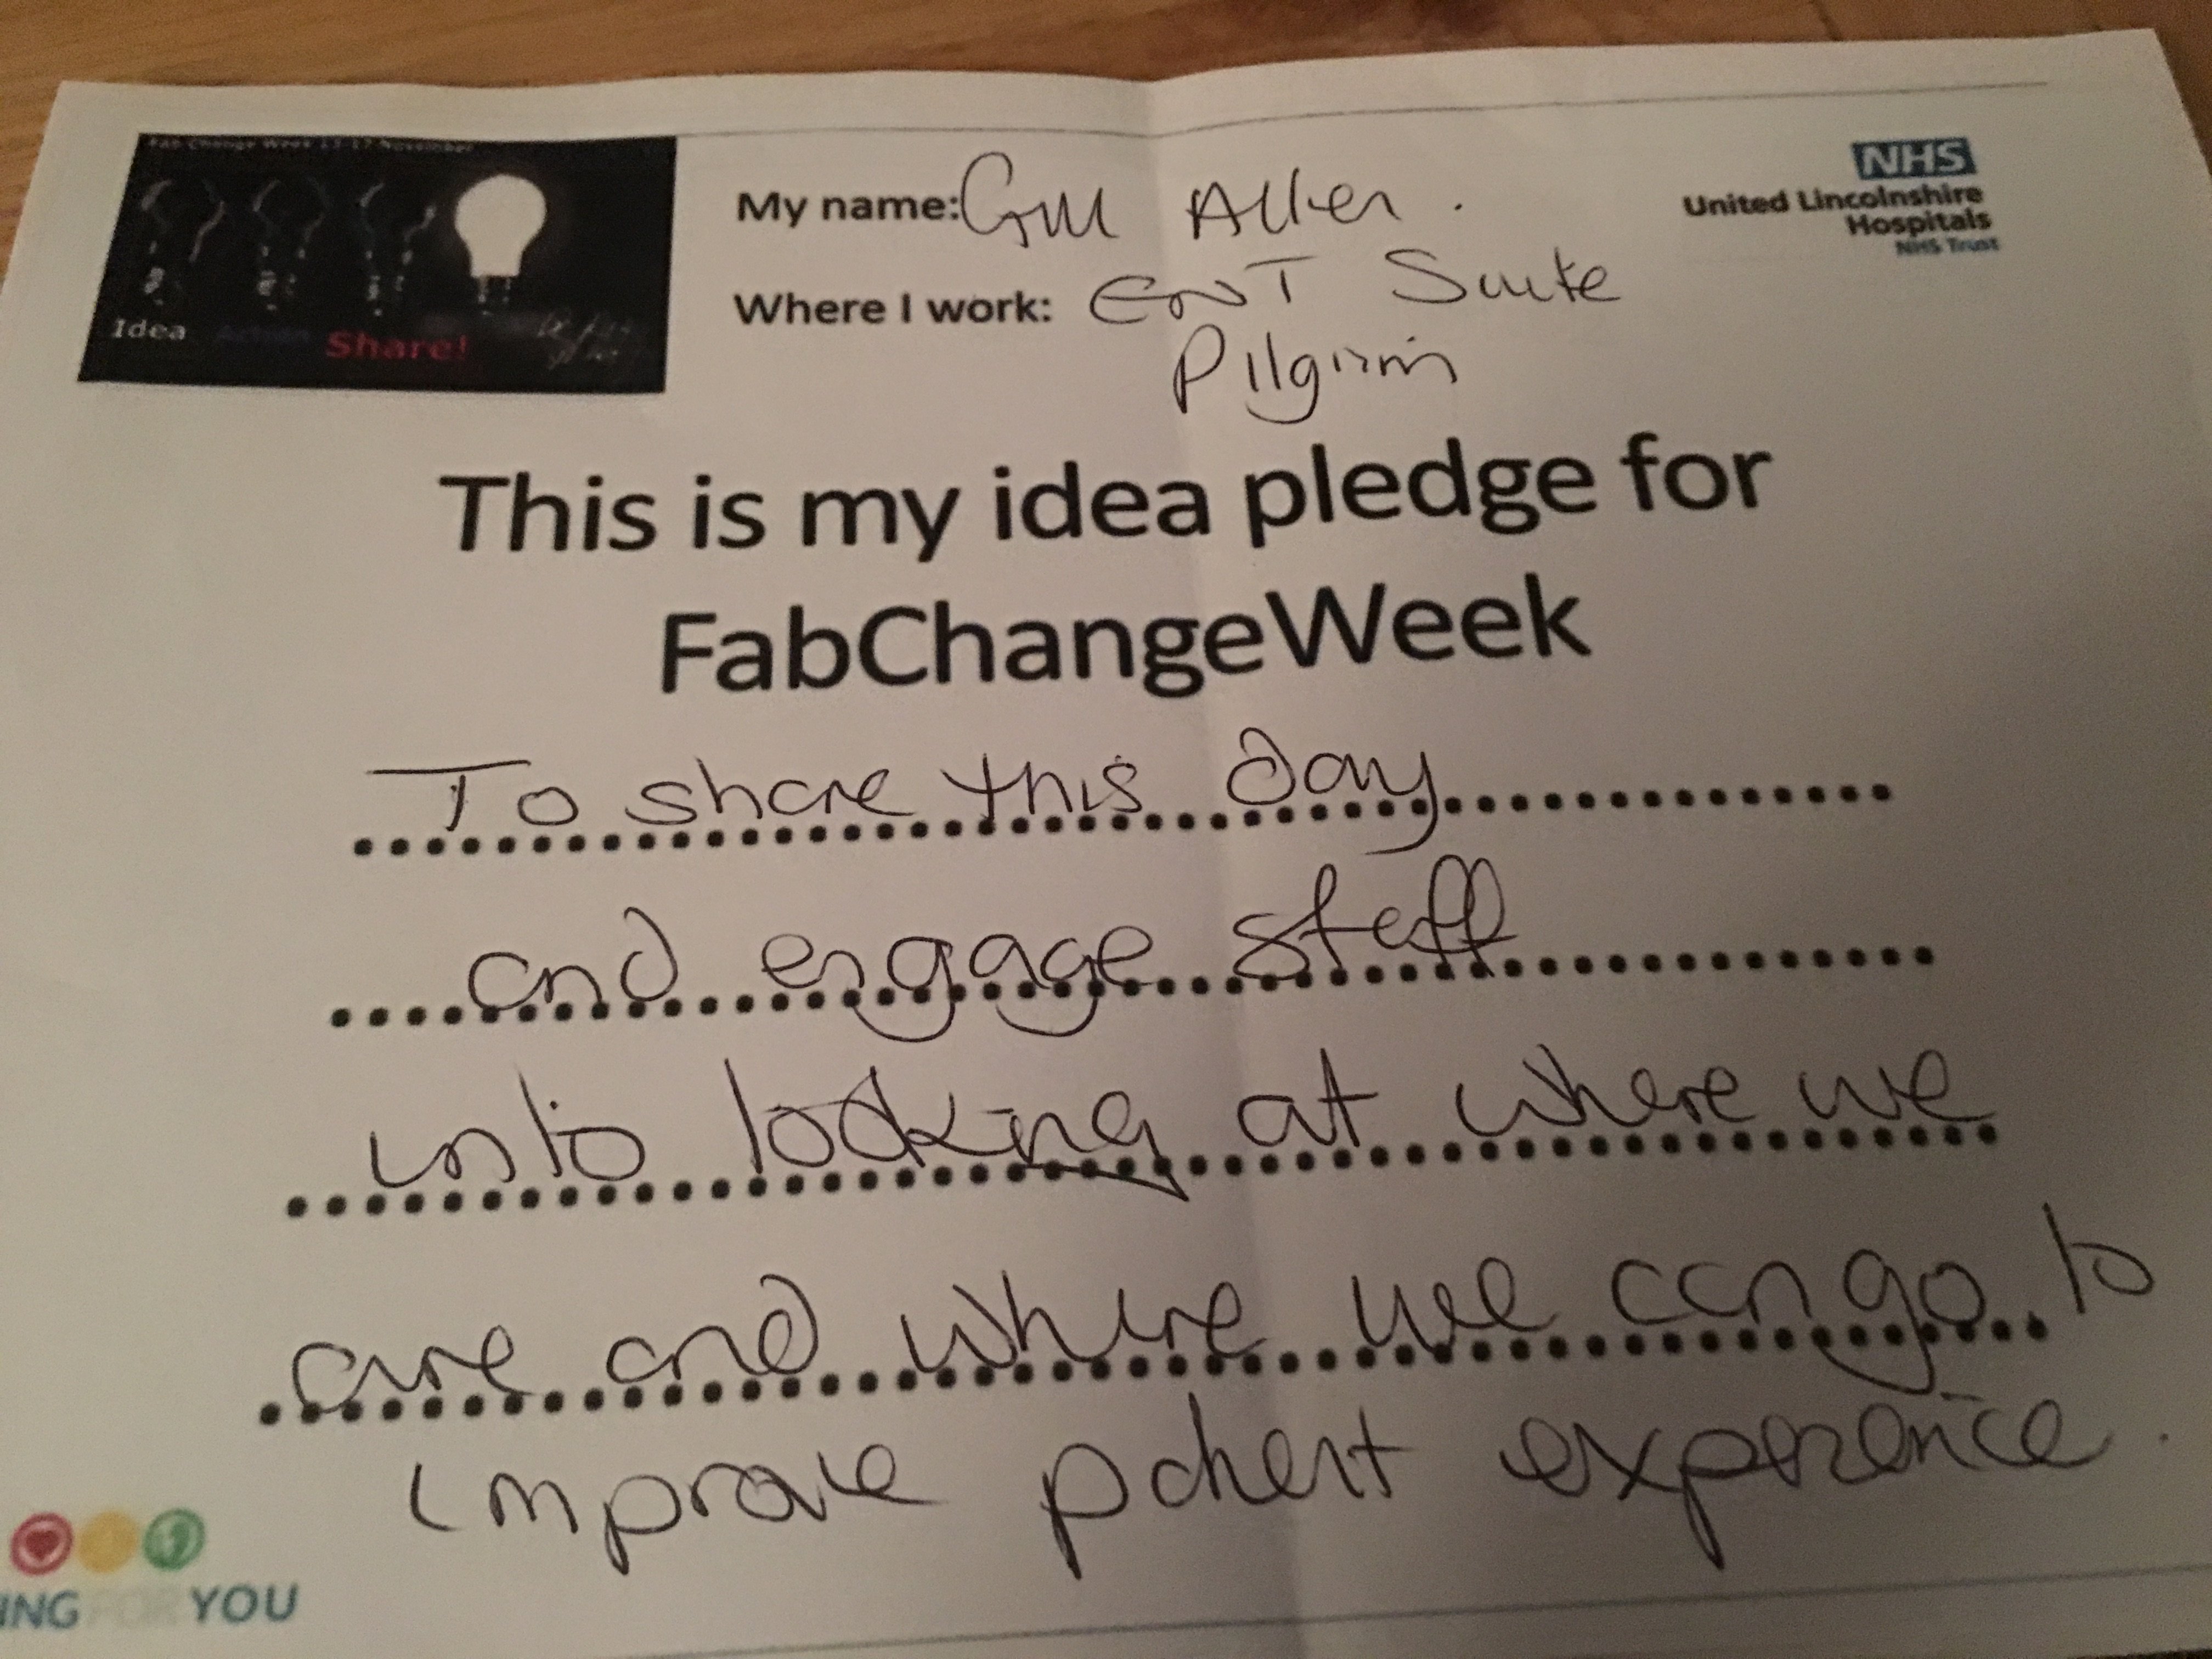 Fab Change Week 13-17 November
Idea Action Share!
My name: Gill Allen.
NHS
United Lincolnshire
Hospitals
NHS Trust
Where I work: ENT Suite
Pilgrim
This is my idea pledge for
FabChangeWeek
To share this day
and engage staff
into looking at where we
are and where we can go to
improve patient experience.
ING FOR YOU